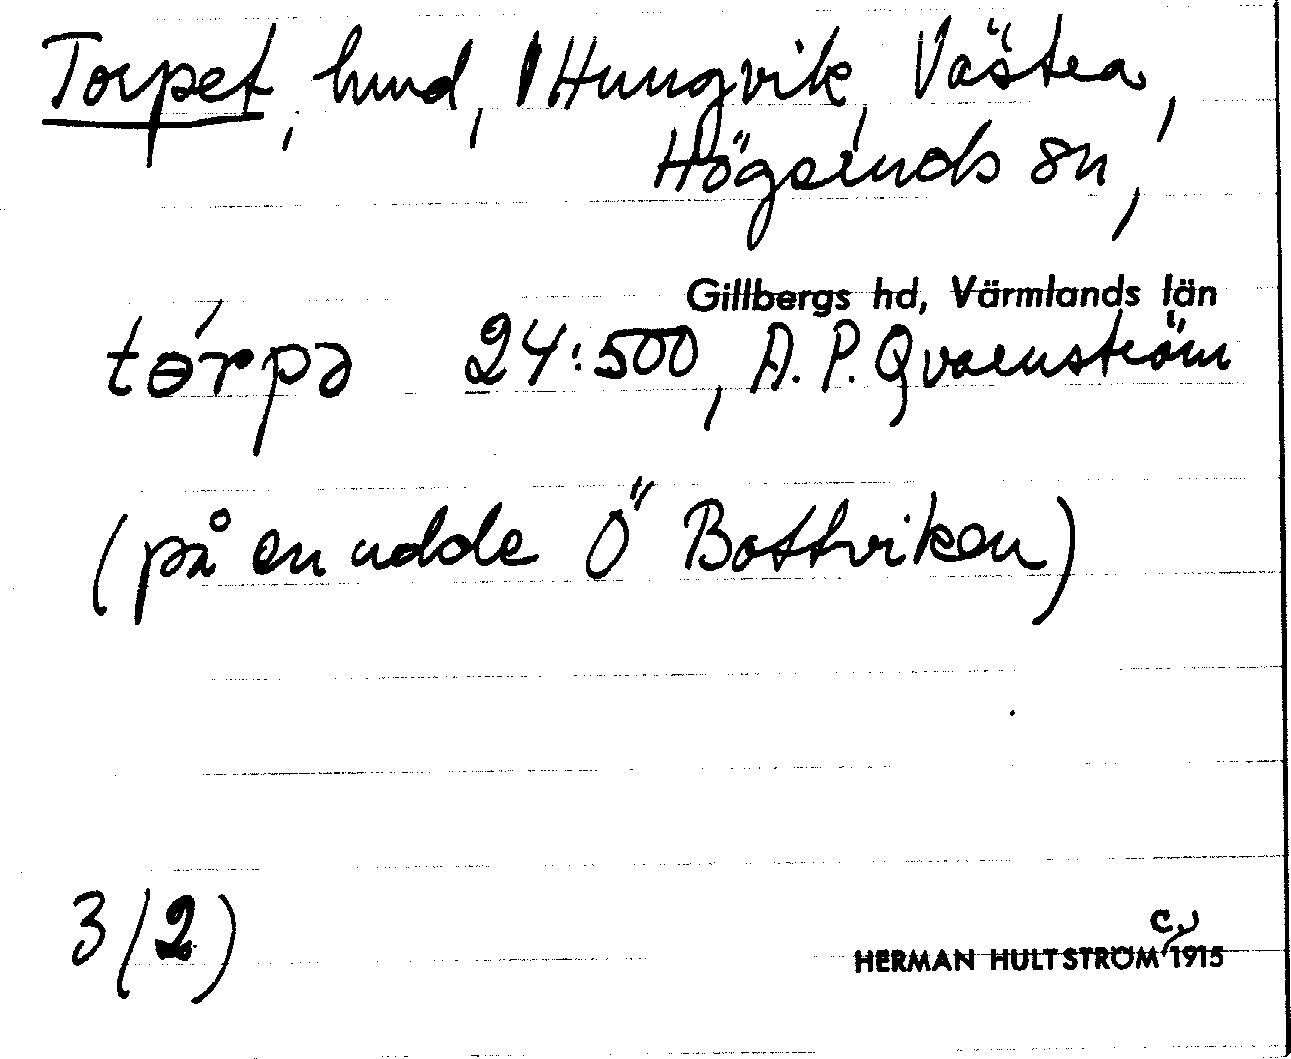 Torpet, hmd, Hungvik, Västra,
Högseruds sn,
Gillbergs hd, Värmlands län
tǝ́rpǝ 24:500, A. P. Qvarnström
(på en udde Ö" Bottviken)
3/(2)
c.
HERMAN HULTSTRÖM 1915